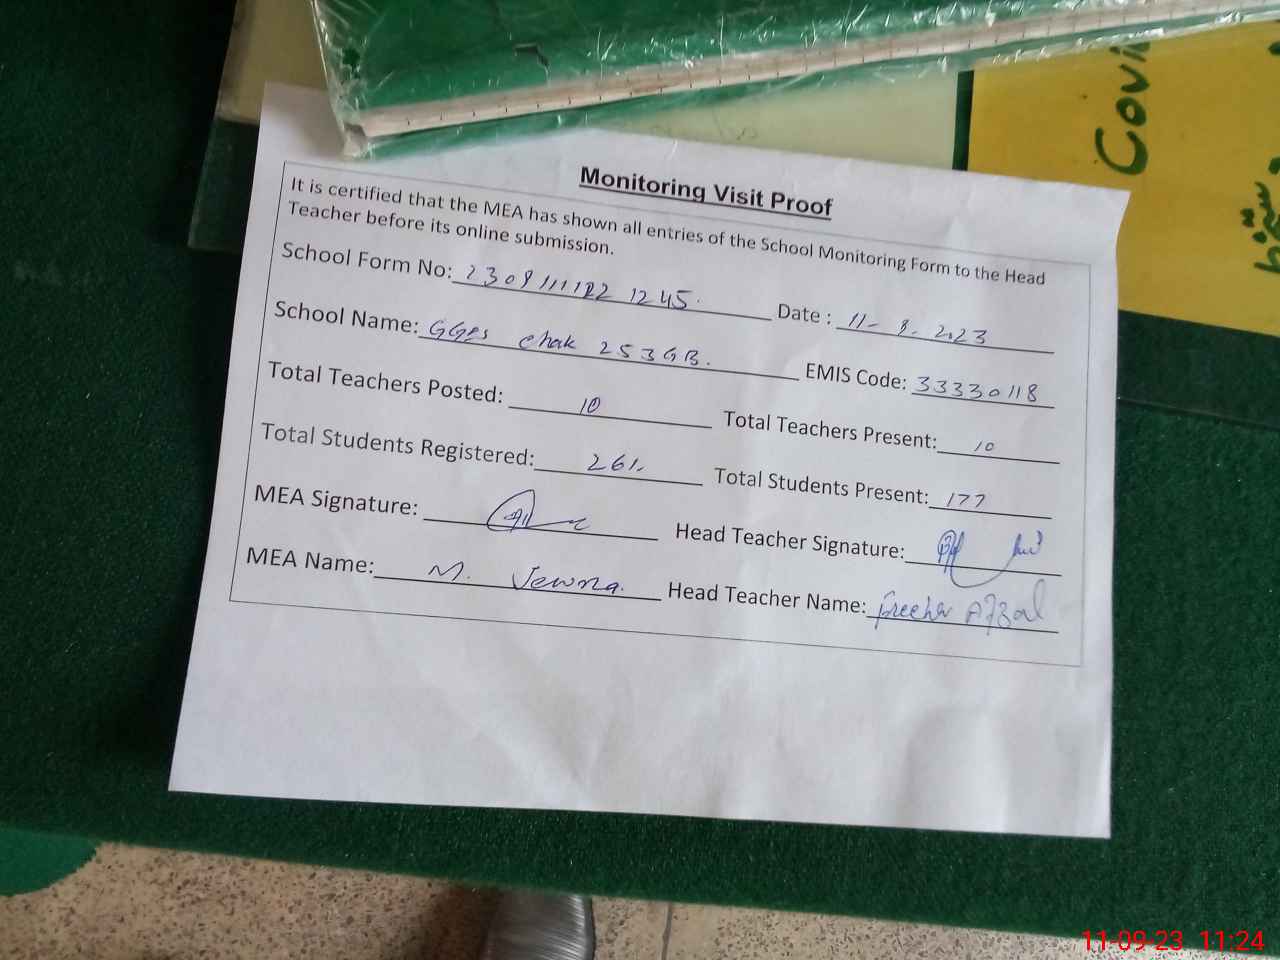 Monitoring Visit Proof
It is certified that the MEA has shown all entries of the School Monitoring Form to the Head
Teacher before its online submission.
School Form No: 2309111122 1245. Date : 11-9-2023
School Name: GGPS Chak 253GB. EMIS Code: 33330118
Total Teachers Posted: 10 Total Teachers Present: 10
Total Students Registered: 261. Total Students Present: 177
MEA Signature: Head Teacher Signature:
MEA Name: M. Head Teacher Name: Afzal
Covi
11-09-23 11:24